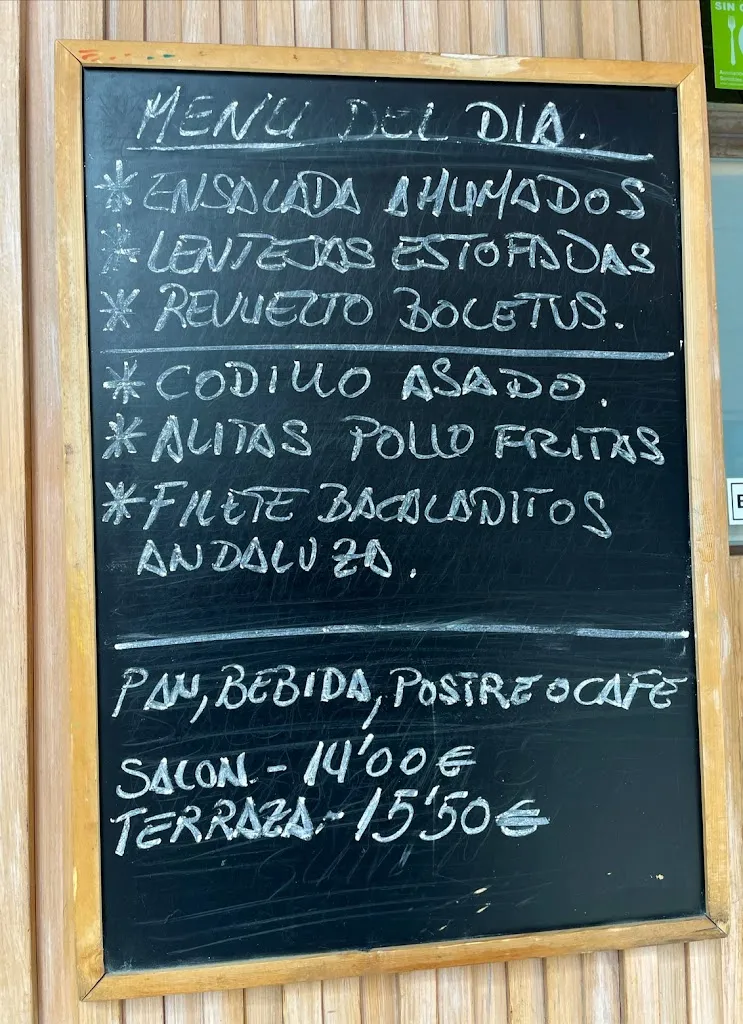 SIN
MENU DEL DIA.
* ENSALADA AHUMADOS
* LENTEJAS ESTOFADAS
* REVUELTO BOLETUS.
* CODILLO ASADO.
* ALITAS POLLO FRITAS
* FILETE BACALADITOS
ANDALUZA.
PAN, BEBIDA, POSTRE O CAFE
SALON.- 14'00€
TERRAZA.- 15'50€